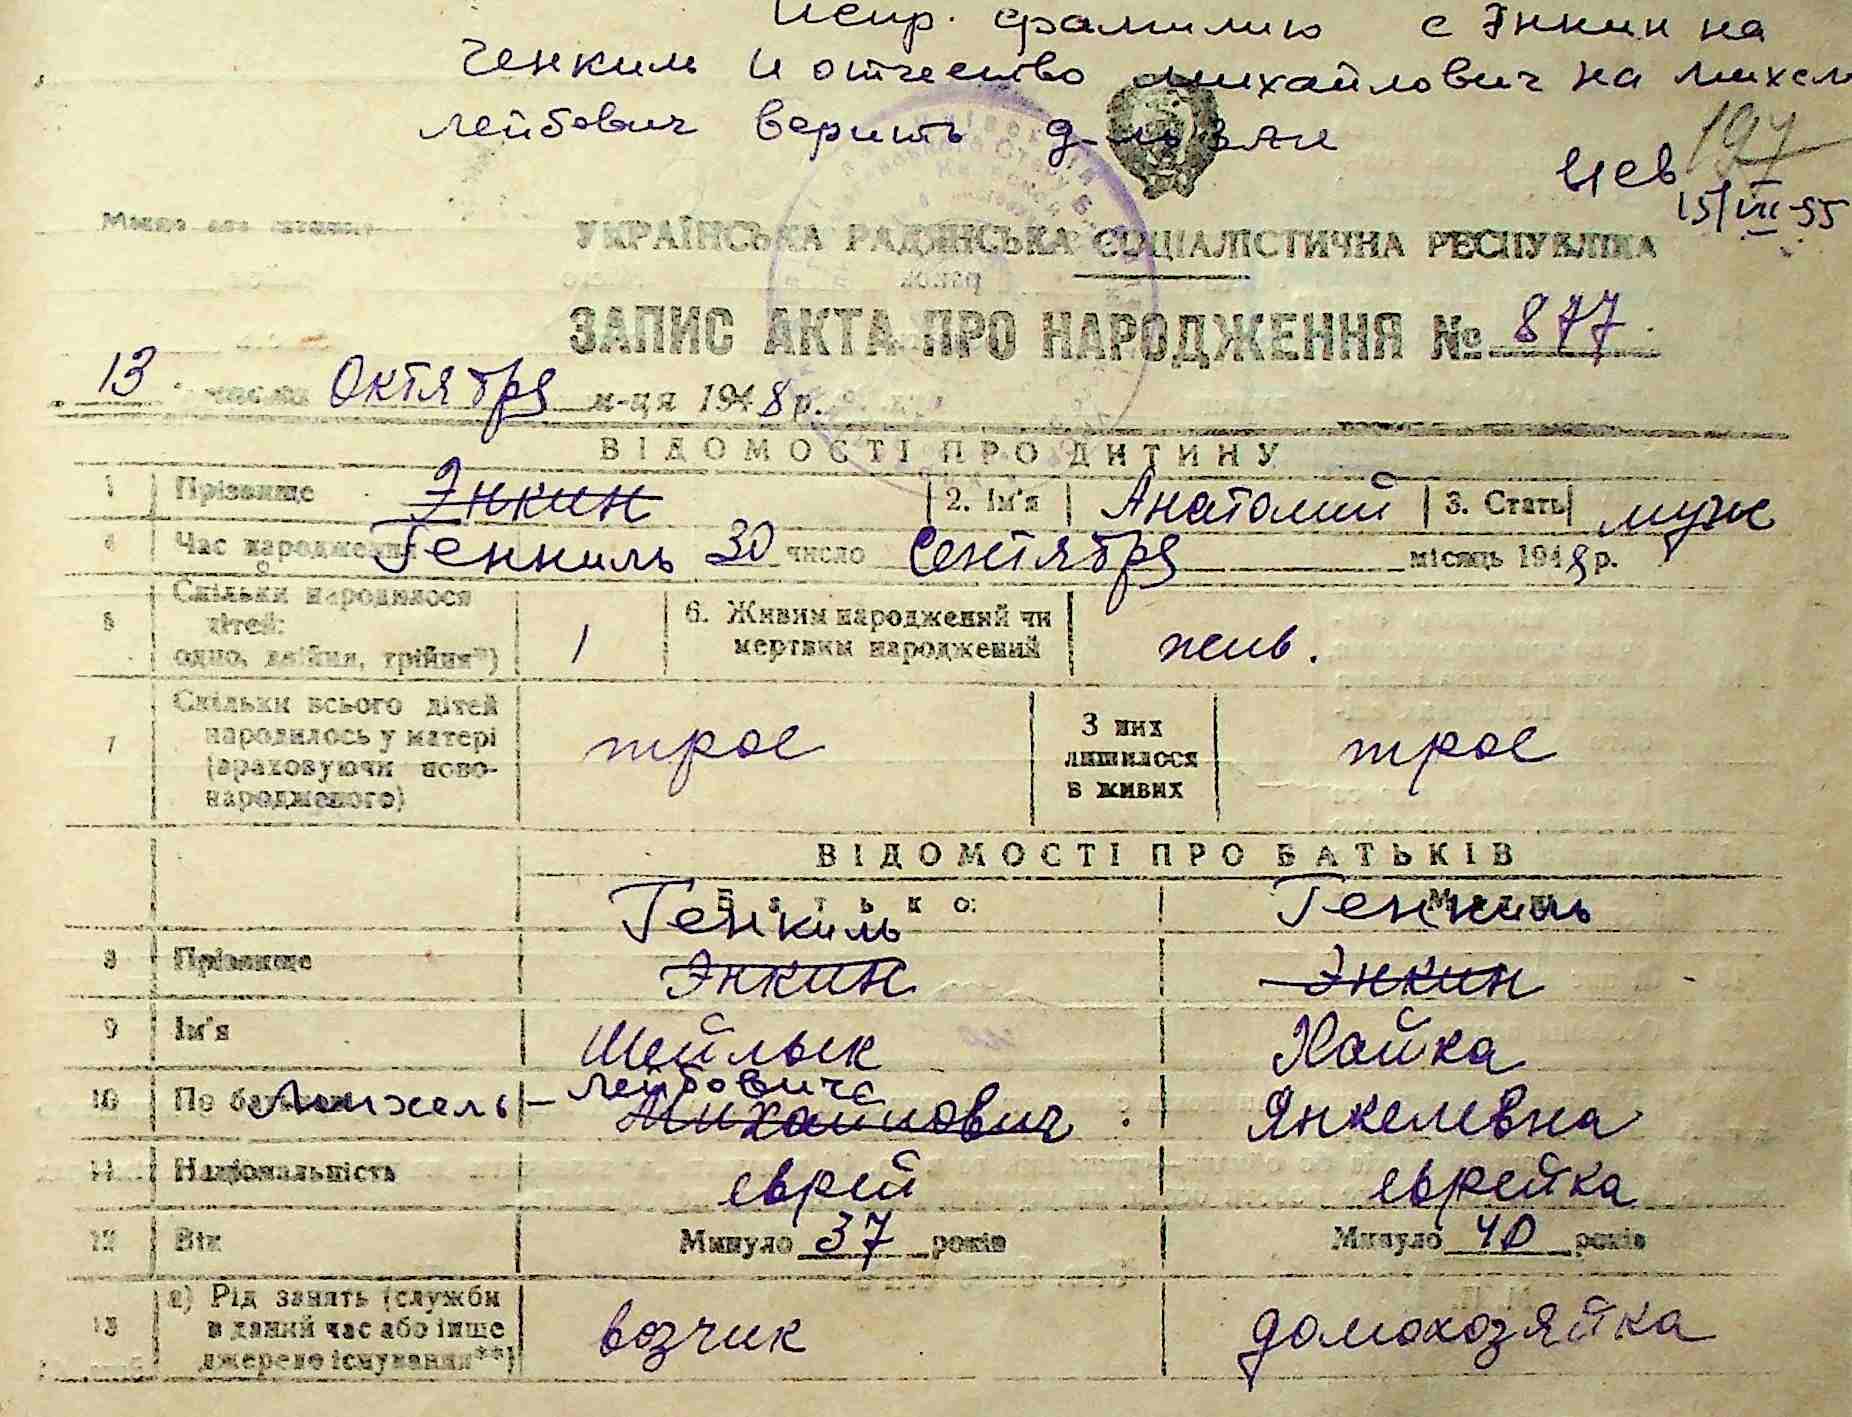 Испр. фамилию с Энкин на
Генкиль и отчество Михайлович на Михель
Лейбович верить
197
15/VII-55
УКРАЇНСЬКА РАДЯНСЬКА СОЦІАЛІСТИЧНА РЕСПУБЛІКА
ЗАПИС АКТА ПРО НАРОДЖЕННЯ № 877
13 числа Октября м-ця 1948 р.
ВІДОМОСТІ ПРО ДИТИНУ
1 Прізвище Энкин 2. Ім'я Анатолий 3. Стать муж
4 Час народження Генкиль 30 число Сентября місяць 1948 р.
5 Скільки народилося дітей: одно, двійня, трійня*) 1 6. Живим народжений чи мертвим народжений жив.
7 Скільки всього дітей народилось у матері (враховуючи ново-народженого) трое З них лишилося в живих трое
ВІДОМОСТІ ПРО БАТЬКІВ
Батько: Мати:
Генкиль Генкиль
8 Прізвище Энкин Энкин
9 Ім'я Шейлык Хайка
10 По батькові Михель-Лейбович Михайлович Янкелевна
11 Національність еврей еврейка
12 Вік Минуло 37 років Минуло 40 років
13 а) Рід занять (служби в даний час або інше джерело існування**) возчик домохозяйка